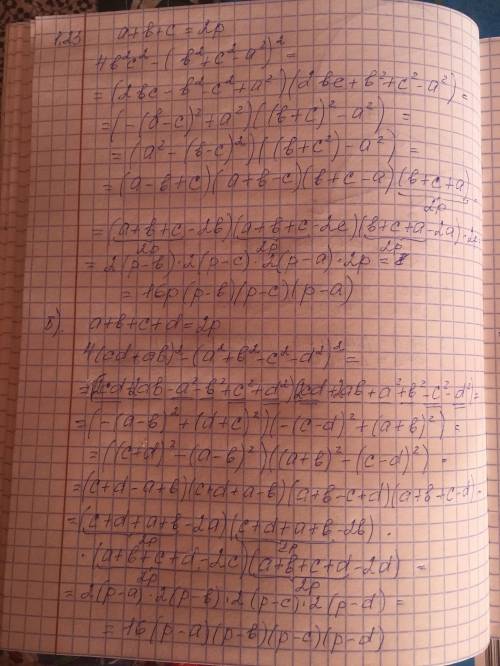 1.23 a+b+c=2p
4b²c²-(b²+c²-a²)²=
=(2bc-b²-c²+a²)(2bc+b²+c²-a²)=
=(-(b-c)²+a²)((b+c)²-a²) =
=(a²-(b-c)²)((b+c²)-a²) =
=(a-b+c)(a+b-c)(b+c-a)(b+c+a)
2p
=(a+b+c-2b)(a+b+c-2c)(b+c+a-2a)·2p
2p 2p 2p
=2(p-b)·2(p-c)·2(p-a)·2p=
=16p(p-b)(p-c)(p-a)
б). a+b+c+d=2p
4(cd+ab)²-(a²+b²-c²-d²)²=
=(2cd+2ab-a²-b²+c²+d²)(2cd+2ab+a²+b²-c²-d²)=
=(-(a-b)²+(d+c)²)(-(c-d)²+(a+b)²)=
=((c+d)²-(a-b)²)((a+b)²-(c-d)²)=
=(c+d-a+b)(c+d+a-b)(a+b-c+d)(a+b+c-d)=
=(c+d+a+b-2a)(c+d+a+b-2b)·
2p 2p
·(a+b+c+d-2c)(a+b+c+d-2d)=
2p 2p
=2(p-a)·2(p-b)·2(p-c)·2(p-d)=
=16(p-a)(p-b)(p-c)(p-d)